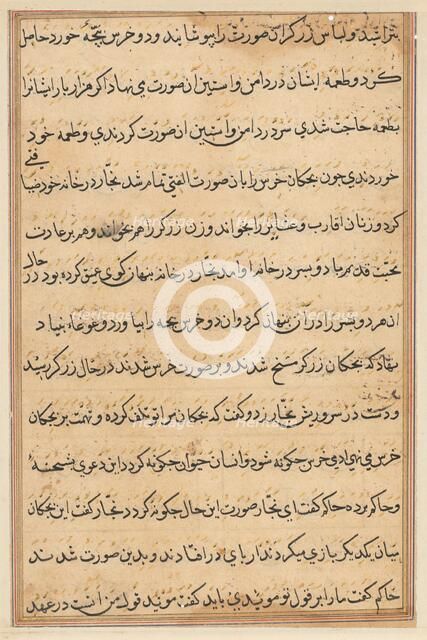 بتراشید و لباس زرگر آن صورت را بپوشانید و دو خرس بچهٔ خورد حاصل
کرد و طعمه ایشان در دامن و آستین آن صورت می نهاد اکر هزار بار ایشانرا
بطعمه حاجت شدی سر در دامن و آستین آن صورت کردندی و طعمه خود
خوردندی چون بچکان خرس را بان صورت الفتی تمام شد نجار در خانه خود ضیافتی
کرد و زنان اقارب و عشایر را بخواند و زن زرکر را هم بخواند و هم بر عادت
محبت قدیم با دو پسر در خانه او آمد نجار در خانه پنهان کوی عمیق کرده بود در حال
ان هر دو پسر را در آن پنهان کرد و ان دو خرس بچه را بیاورد و غوغا بنیاد
نهاد که بچکان زرکر مسخ شدند و بر صورت خرس شدند در حال زرکر رسید
و دست در سر و ریش نجار زد و کفت که بچکان مرا تو تلف کرده و تهمت بر بچکان
خرس می نهی ادمی خرس چکونه شود و انسان حیوان چکونه کردد این دعوی بشحنه
و حاکم برده حاکم کفت ای نجار صورت این حال چکونه کردد نجار کفت این بچکان
میان یکدیکر بازی میکردند از پای در افتادند و بدین صورت شدند
حاکم کفت ما را بر قول تو مویدی باید کفت موید قول من انست در عهد
Heritage
Images